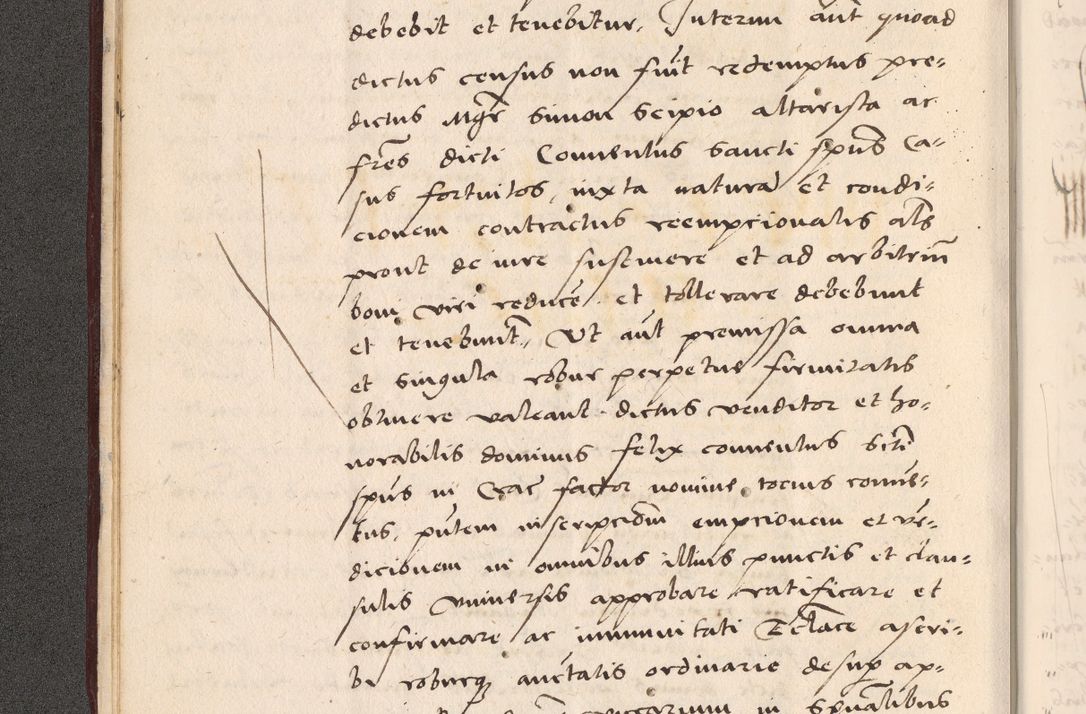 debebit et tenebitur, Interim aut quoad
dictus census non fuit redemptus pre-
dictus Mgr Simon Scipio altarista ac
fres dicti Conventus Sancti spus Ca-
sus fortuitos, iuxta natura et condi-
cionem contractus reempcionalis als
prout de iure sustinere et ad arbitriu
boni viri reduce et tollerare debebunt
et tenebunt, Ut aut premissa omnia
et singula robur perpetue firmitatis
obtinere valeant dictus venditor et ho-
norabilis dominus felix conventus Scti
spus in Crac factor nomine tocius conve-
tus, putem inscripciom empcionem et ve-
dicionem in omnibus illius punctis et clau-
sulis universis approbare ratificare et
confirmare ac immunitati Ecclace ascri-
bi roburq auctatis ordinarie desup ap-
in spualibus